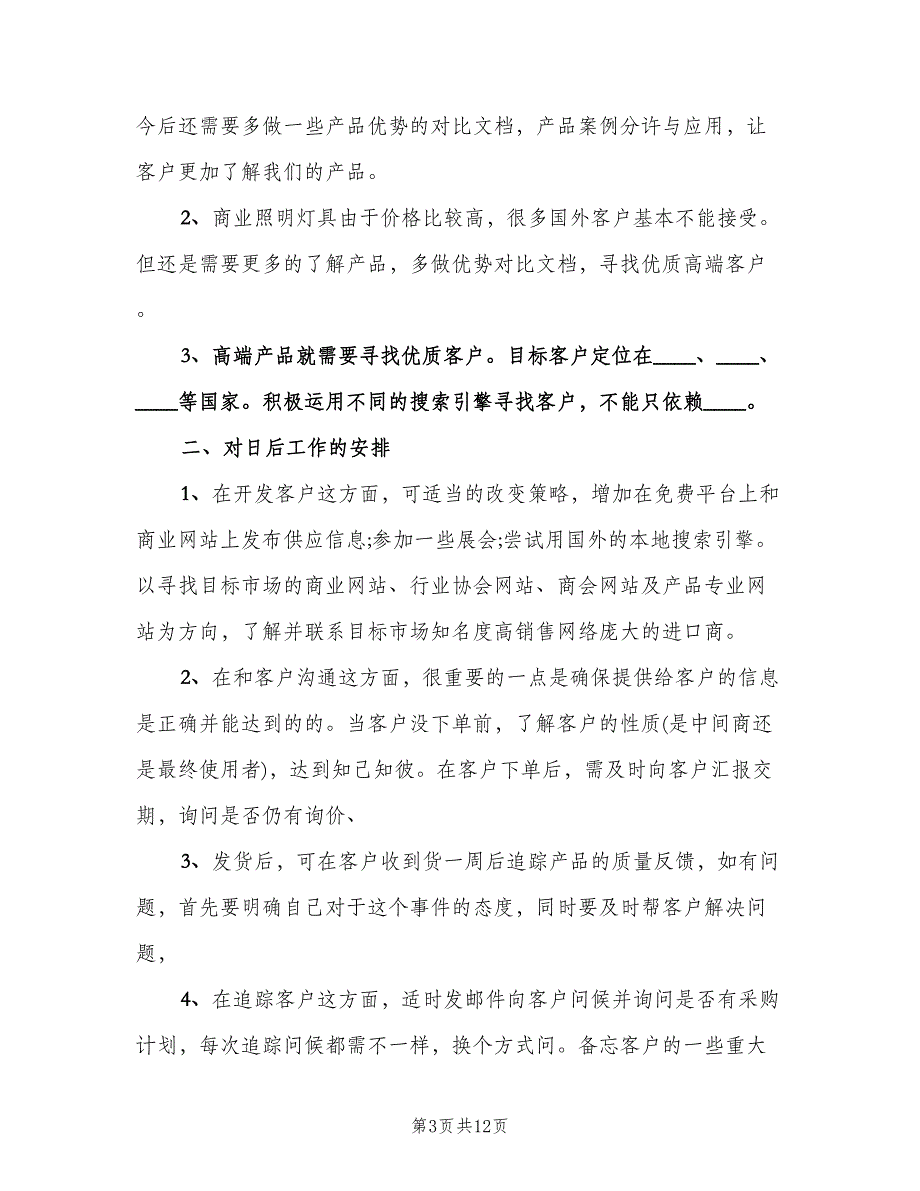 今后还需要多做一些产品优势的对比文档，产品案例分许与应用，让
客户更加了解我们的产品。
2、商业照明灯具由于价格比较高，很多国外客户基本不能接受。
但还是需要更多的了解产品，多做优势对比文档，寻找优质高端客户
。
3、高端产品就需要寻找优质客户。目标客户定位在____、____、
____等国家。积极运用不同的搜索引擎寻找客户，不能只依赖____。
二、对日后工作的安排
1、在开发客户这方面，可适当的改变策略，增加在免费平台上和
商业网站上发布供应信息;参加一些展会;尝试用国外的本地搜索引擎。
以寻找目标市场的商业网站、行业协会网站、商会网站及产品专业网
站为方向，了解并联系目标市场知名度高销售网络庞大的进口商。
2、在和客户沟通这方面，很重要的一点是确保提供给客户的信息
是正确并能达到的的。当客户没下单前，了解客户的性质(是中间商还
是最终使用者)，达到知己知彼。在客户下单后，需及时向客户汇报交
期，询问是否仍有询价、
3、发货后，可在客户收到货一周后追踪产品的质量反馈，如有问
题，首先要明确自己对于这个事件的态度，同时要及时帮客户解决问
题，
4、在追踪客户这方面，适时发邮件向客户问候并询问是否有采购
计划，每次追踪问候都需不一样，换个方式问。备忘客户的一些重大
第3页共12页